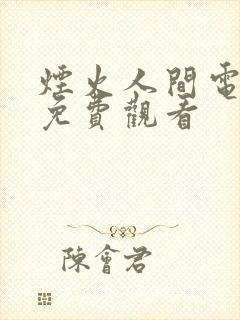 煙火人間電
免費觀看
陳會君